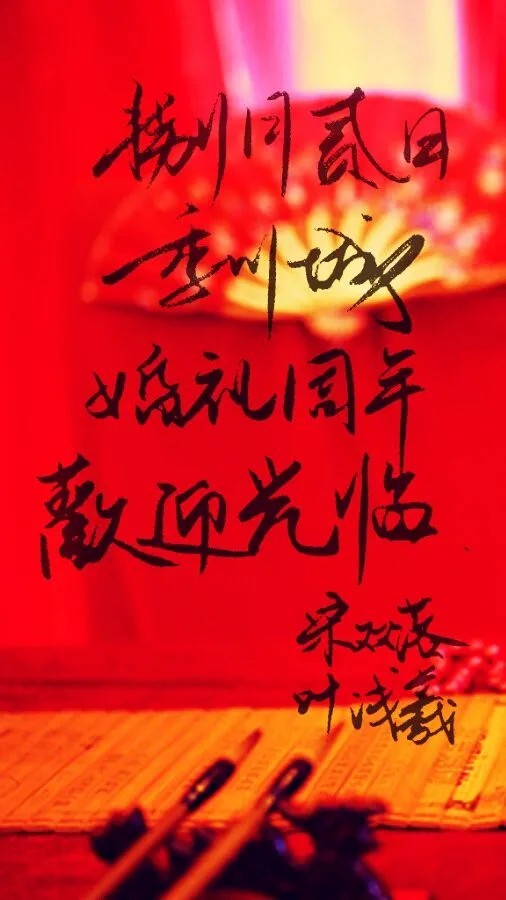 捌月贰日
季川城
婚礼周年
歡迎光临
宋双落
叶浅羲